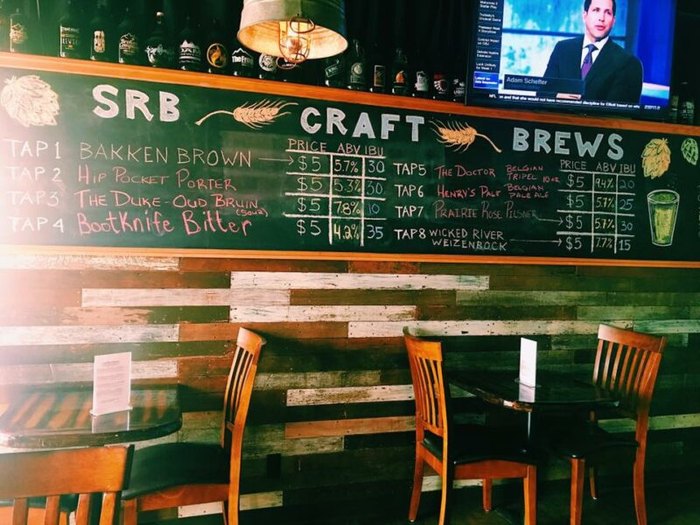 Adam Schefter
SRB CRAFT BREWS
PRICE ABV IBU
TAP 1 BAKKEN BROWN $5 5.7% 30
TAP 2 HIP POCKET PORTER $5 5.3% 30
TAP 3 THE DUKE-OUD BRUIN (SOUR) $5 7.8% 10
TAP 4 BootKnife Bitter $5 4.2% 35
PRICE ABV IBU
TAP 5 THE DOCTOR BELGIAN TRIPEL $5 9.4% 20
TAP 6 HENRY'S PALE BELGIAN PALE ALE $5 25
TAP 7 PRAIRIE ROSE PILSNER $5
TAP 8 WICKED RIVER WEIZENBOCK $5 7.7% 15